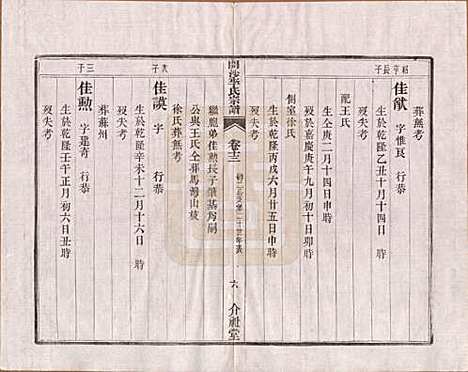 葬無考
佳猷 字惟良 行恭
生於乾隆乙丑十月十四時
歿失考
配王氏
生於 庚二月十四日申時
側室徐氏
歿於嘉慶庚午九月初十日卯時
生於乾隆丙戌六月廿五日申時
歿失考
繼胞弟佳勲長子肇基為嗣
公與王氏仝葬馬灣山岐
徐氏葬無考
次子
佳謨 字 行恭
生於乾隆辛未十二月十六日 時
歿失考
葬蘇州
三子
佳勲 字建青 行恭
生於乾隆壬午正月初六日丑時
歿失考
李氏宗譜
卷十三
六
介祉堂